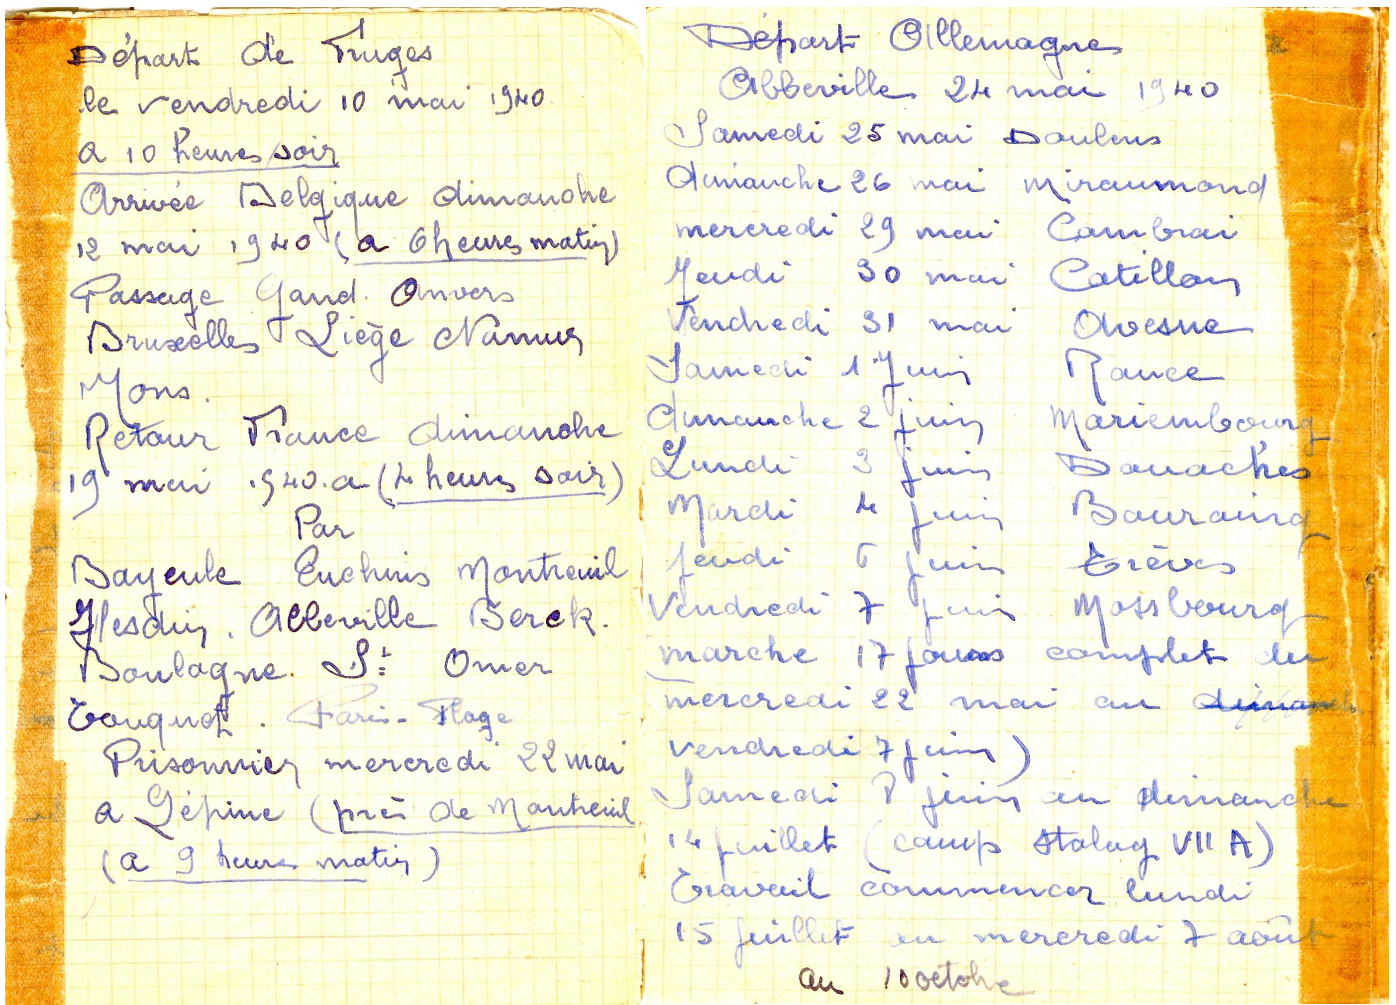 Départ de Fruges
le vendredi 10 mai 1940
a 10 heures soir
Arrivée Belgique dimanche
12 mai 1940 (a 6 heures matin)
Passage Gand. Anvers
Bruxelles Liège Namur
Mons.
Retour France dimanche
19 mai 1940. a (4 heures soir)
Par
Bayeule Euchinis Montreuil
Hesdin. Abbeville Berck.
Boulogne. St Omer
Touquet. Paris-Plage
Prisonnier mercredi 22 mai
a Lépine (près de Montreuil
(a 9 heures matin)
Départ Allemagne
Abbeville 24 mai 1940
Samedi 25 mai Doulens
dimanche 26 mai Miraumond
mercredi 29 mai Cambrai
Jeudi 30 mai Catillon
Vendredi 31 mai Avesne
Samedi 1 Juin Rance
dimanche 2 juin Mariembourg
Lundi 3 juin Donaches
Mardi 4 juin Bouraing
jeudi 6 juin Trèves
Vendredi 7 juin Mossbourg
marche 17 jours complet du
mercredi 22 mai au dimanch
vendredi 7 juin)
Samedi 8 juin au dimanche
14 juillet (camp Stalag VII A)
Travail commencer lundi
15 juillet au mercredi 7 août
au 10 octobre